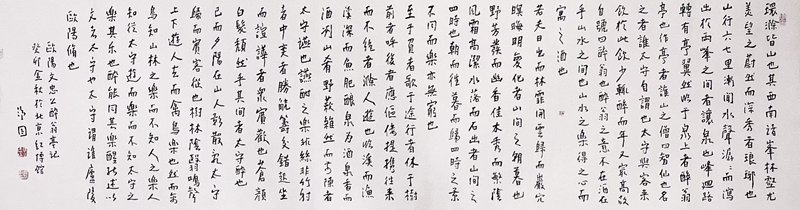 環滁皆山也其西南諸峯林壑尤
美望之蔚然而深秀者琅琊也
山行六七里漸聞水聲潺潺而瀉
出於兩峯之間者讓泉也峰迴路
轉有亭翼然臨于泉上者醉翁
亭也作亭者誰山之僧曰智仙也名
之者誰太守自謂也太守與客來
飲於此飲少輒醉而年又最高故
自號曰醉翁也醉翁之意不在酒在
乎山水之間也山水之樂得之心而
寓之酒也
若夫日出而林霏開雲歸而巖穴
暝晦明變化者山間之朝暮也
野芳發而幽香佳木秀而繁陰
風霜高潔水落而石出者山間之
四時也朝而往暮而歸四時之景
不同而樂亦無窮也
至于負者歌于途行者休于樹
前者呼後者應傴僂提攜往來
而不絕者滁人遊也臨溪而漁
溪深而魚肥釀泉為酒泉香而
酒洌山肴野蔌雜然而前陳者
太守宴也宴酣之樂非絲非竹射
者中奕者勝觥籌交錯起坐
而諠譁者衆賓歡也蒼顏
白髮頹然乎其間者太守醉也
已而夕陽在山人影散亂太守
歸而賓客從也樹林陰翳鳴聲
上下遊人去而禽鳥樂也然而禽
鳥知山林之樂而不知人之樂人
知從太守遊而樂而不知太守之
樂其樂也醉能同其樂醒能述以
文者太守也太守謂誰廬陵
歐陽脩也
歐陽文忠公醉翁亭記
癸卯金秋於北京